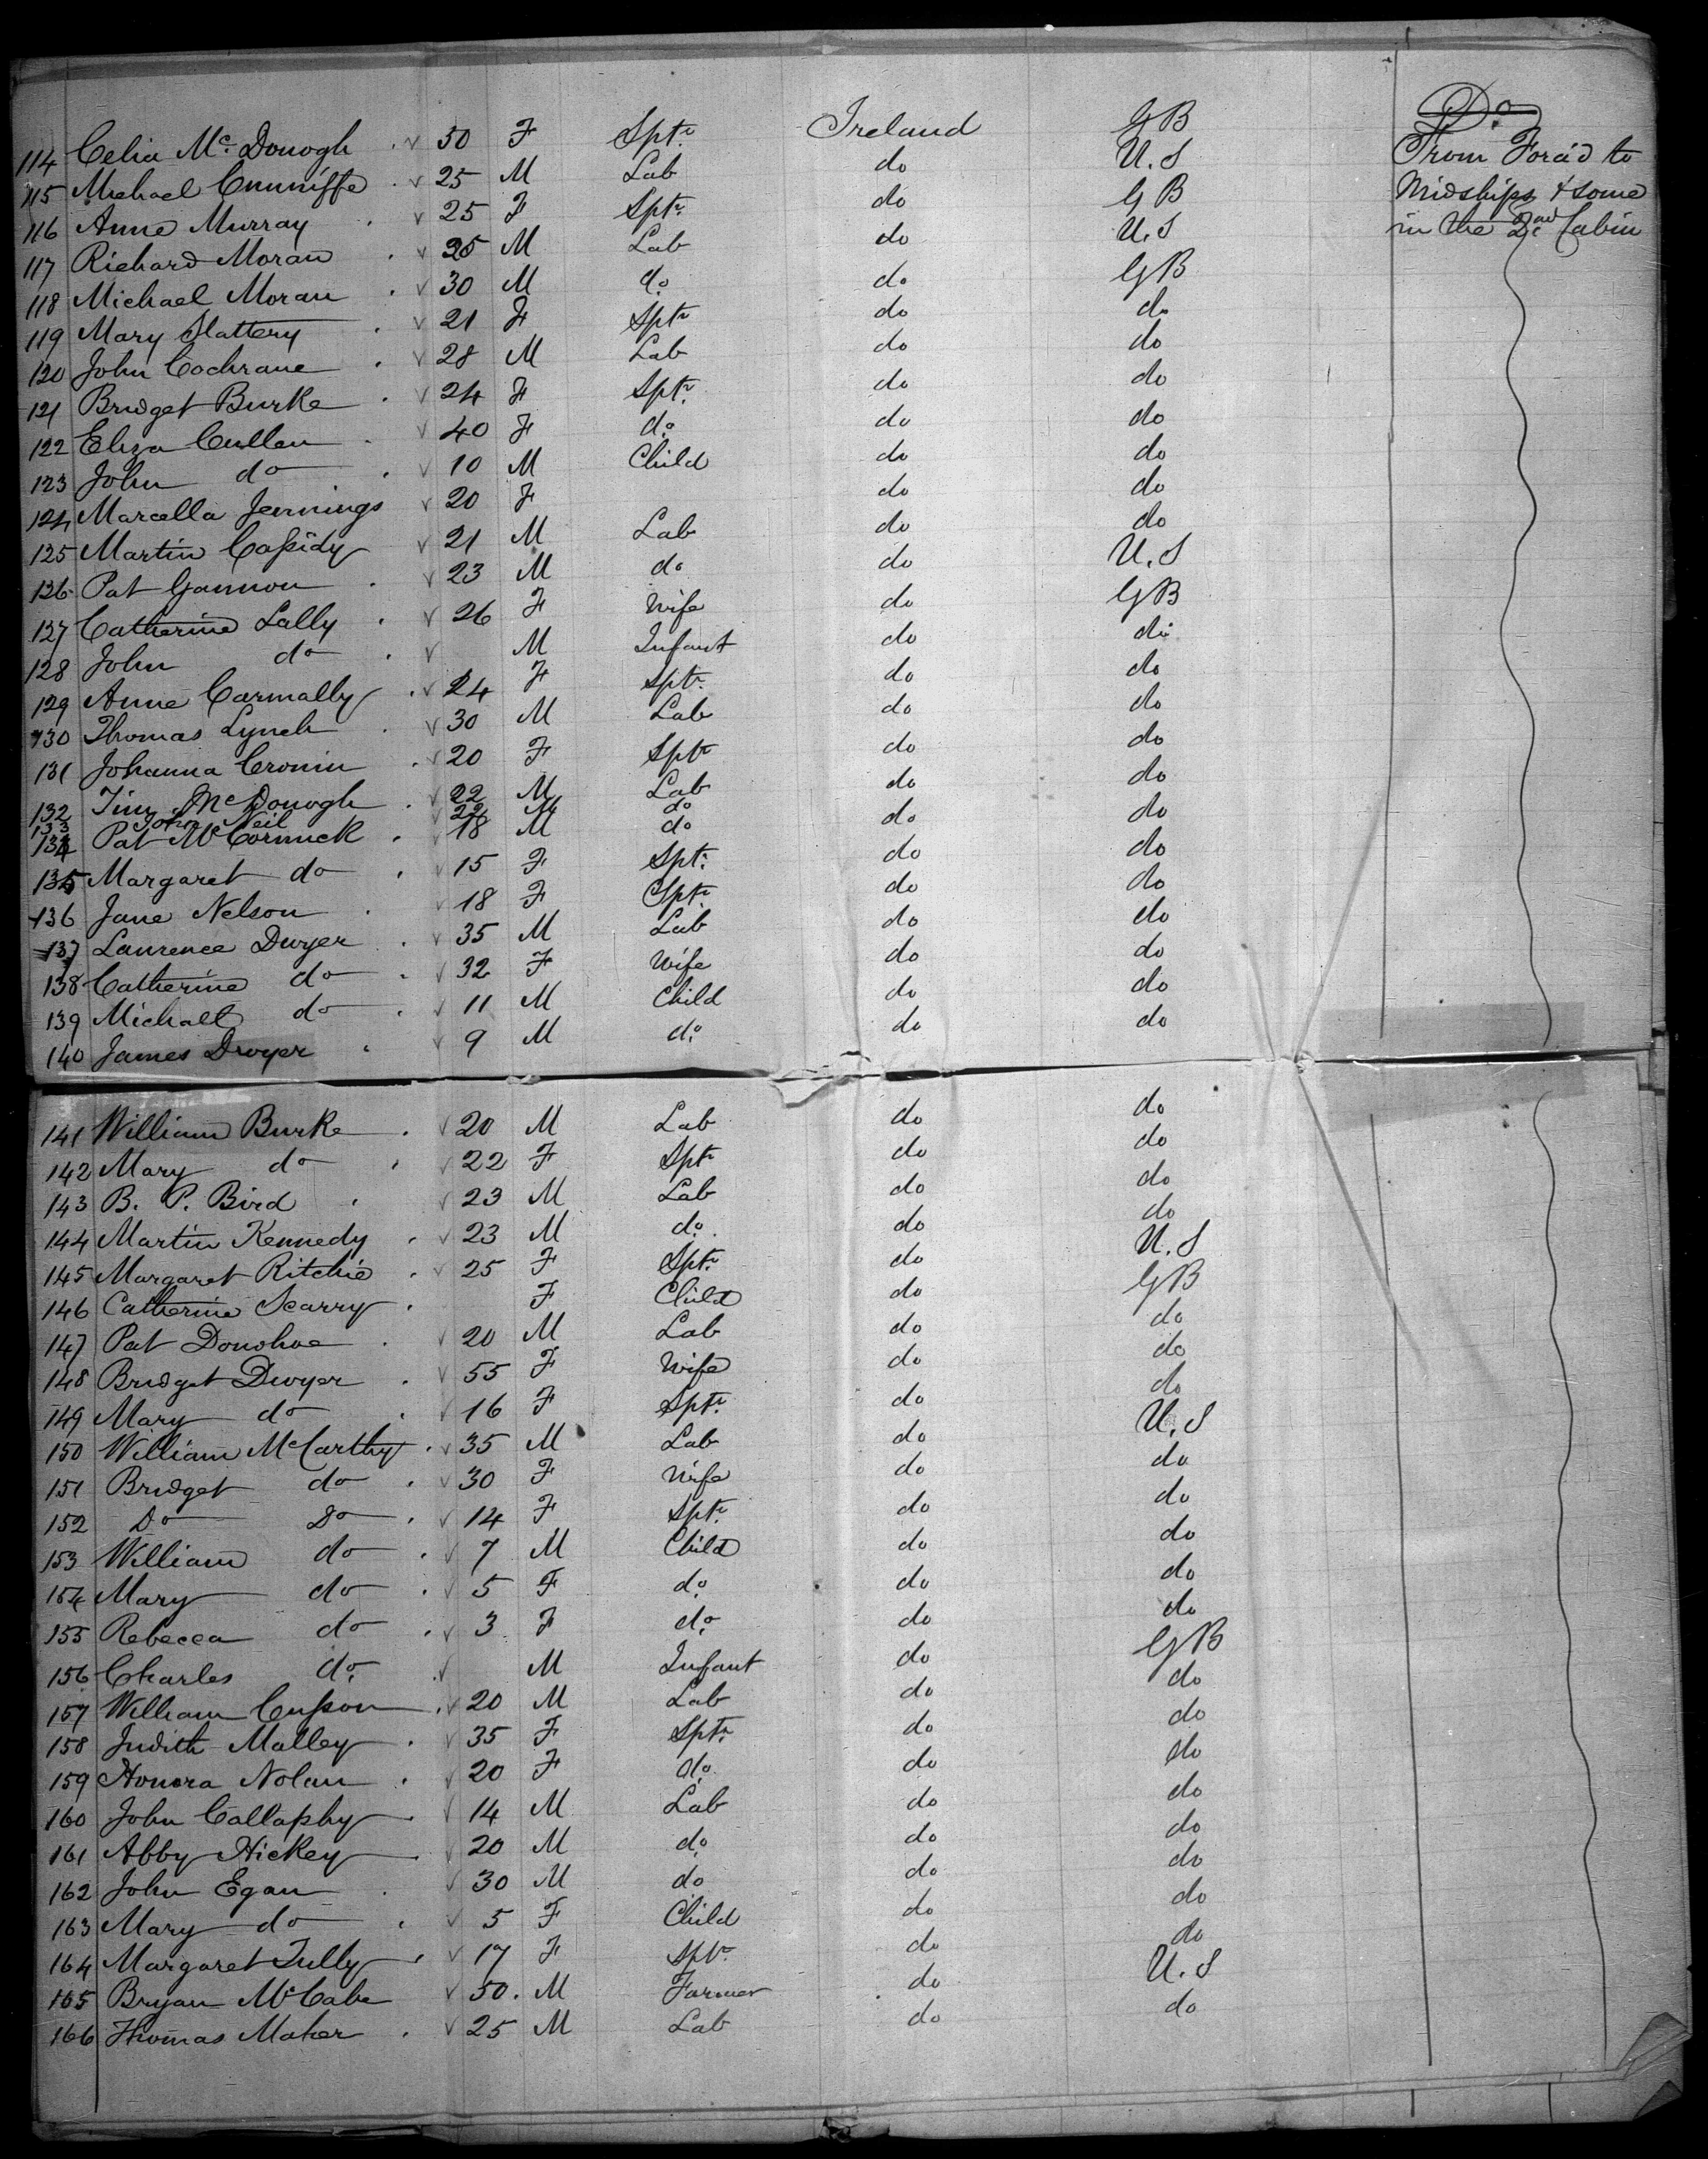 114 Celia Mc. Donogh . v 50 F Sptr. Ireland GB Do.
115 Michael Cunniffe . v 25 M Lab do U.S From For'd to
116 Anne Murray . v 25 F Sptr. do GB Midships & some
117 Richard Moran . v 25 M Lab do U.S in the 2nd Cabin
118 Michael Moran . v 30 M do. do GB
119 Mary Slattery . v 21 F Sptr do do
120 John Cochrane . v 28 M Lab do do
121 Bridget Burke . v 24 F Sptr. do do
122 Eliza Cullen . v 40 F do. do do
123 John do . v 10 M Child do do
124 Marcella Jennings v 20 F do do
125 Martin Cassidy v 21 M Lab do do
126 Pat Gannon . v 23 M do do U.S
127 Catherine Lally . v 26 F Wife do GB
128 John do . v M Infant do do
129 Anne Carmally . v 24 F Sptr. do do
130 Thomas Lynch . v 30 M Lab do do
131 Johanna Cronin . v 20 F Sptr do do
132 Timy McDonogh . v 22 M Lab do do
133 John Neil v 22 M do
134 Pat McCormick . v 18 M do do do
135 Margaret do . v 15 F Sptr. do do
136 Jane Nelson . v 18 F Sptr. do do
137 Laurence Dwyer . v 35 M Lab do do
138 Catherine do . v 32 F Wife do do
139 Michael do . v 11 M Child do do
140 James Dwyer . v 9 M do. do do
141 William Burke . v 20 M Lab do do
142 Mary do . v 22 F Sptr do do
143 B. P. Bird . v 23 M Lab do do
144 Martin Kennedy . v 23 M do. do do
145 Margaret Ritchie . v 25 F Sptr. do U.S
146 Catherine Scarry . F Child do GB
147 Pat Donohoe . v 20 M Lab do do
148 Bridget Dwyer . v 55 F Wife do do
149 Mary do . v 16 F Sptr. do do
150 William McCarthy . v 35 M Lab do U.S
151 Bridget do . v 30 F Wife do do
152 Do Do . v 14 F Sptr. do do
153 William do . v 7 M Child do do
154 Mary do . v 5 F do. do do
155 Rebecca do . v 3 F do. do do
156 Charles do. . v M Infant do GB
157 William Cusson . v 20 M Lab do do
158 Judith Malley . v 35 F Sptr. do do
159 Honora Nolan . v 20 F do. do do
160 John Callaphy . v 14 M Lab do do
161 Abby Hickey . v 20 M do. do do
162 John Egan . v 30 M do do do
163 Mary do . v 5 F Child do do
164 Margaret Tully . v 17 F Sptr. do do
165 Bryan McCabe v 50. M Farmer do U.S
166 Thomas Maher . v 25 M Lab do do